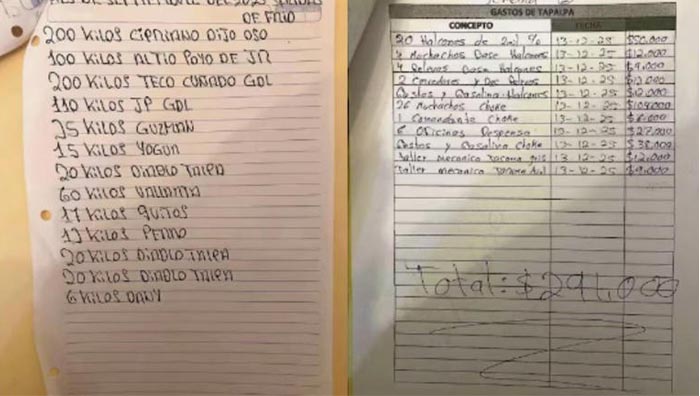 DE SEPTIEMBRE DEL 2025
DE FRIO
200 KILOS CIPRIANO DIJO OSO
100 KILOS ALTIO POYO DE JR
200 KILOS TECO CUÑADO GDL
110 KILOS JP GDL
25 KILOS GUZMAN
15 KILOS YOGUR
20 KILOS DIABLO TALPA
60 KILOS VALLARTA
17 KILOS QUITOS
12 KILOS PERRO
20 KILOS DIABLO TALPA
20 KILOS DIABLO TALPA
6 KILOS DANY
GASTOS DE TAPALPA
CONCEPTO FECHA
20 Halcones de % 13-12-25 $50,000
Muchachos Base Halcones 13-12-25 $12,000
4 Relevos Base Halcones 13-12-25 $9,000
2 Comedores y 13-12-25 $12,000
Gastos y Gasolina Halcones 13-12-25 $12,000
26 Muchachos Choke 13-12-25 $104,000
1 Comandante Choke 13-12-25 $6,000
6 Oficinas Despensa 13-12-25 $27,000
Gastos y Gasolina Choke 13-12-25 $38,000
Taller mecanica Tacoma gris 13-12-25 $12,000
Taller mecanica Tacoma Azul 13-12-25 $9,000
Total: $291,000